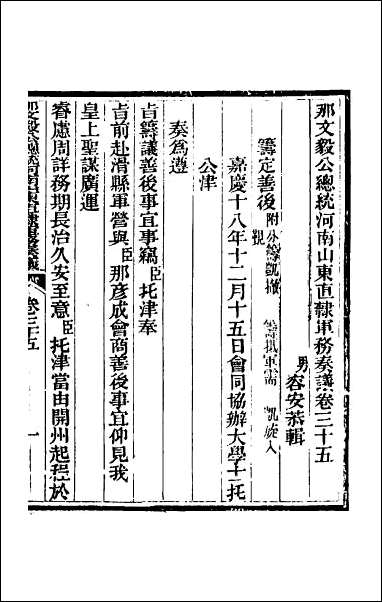 那文毅公總統河南山東直隸軍務奏議卷三十五
男容安恭輯
籌定善後附分籌凱撤 籌撥軍需 凱旋入覲
嘉慶十八年十二月十五日會同協辦大學士托
公津
奏為遵
旨籌議善後事宜事竊臣托津奉
旨前赴滑縣軍營與臣那彥成會商善後事宜仰見我
皇上聖謀廣運
睿慮周詳務期長治久安至意臣托津當由開州起程於
卷三十五 一